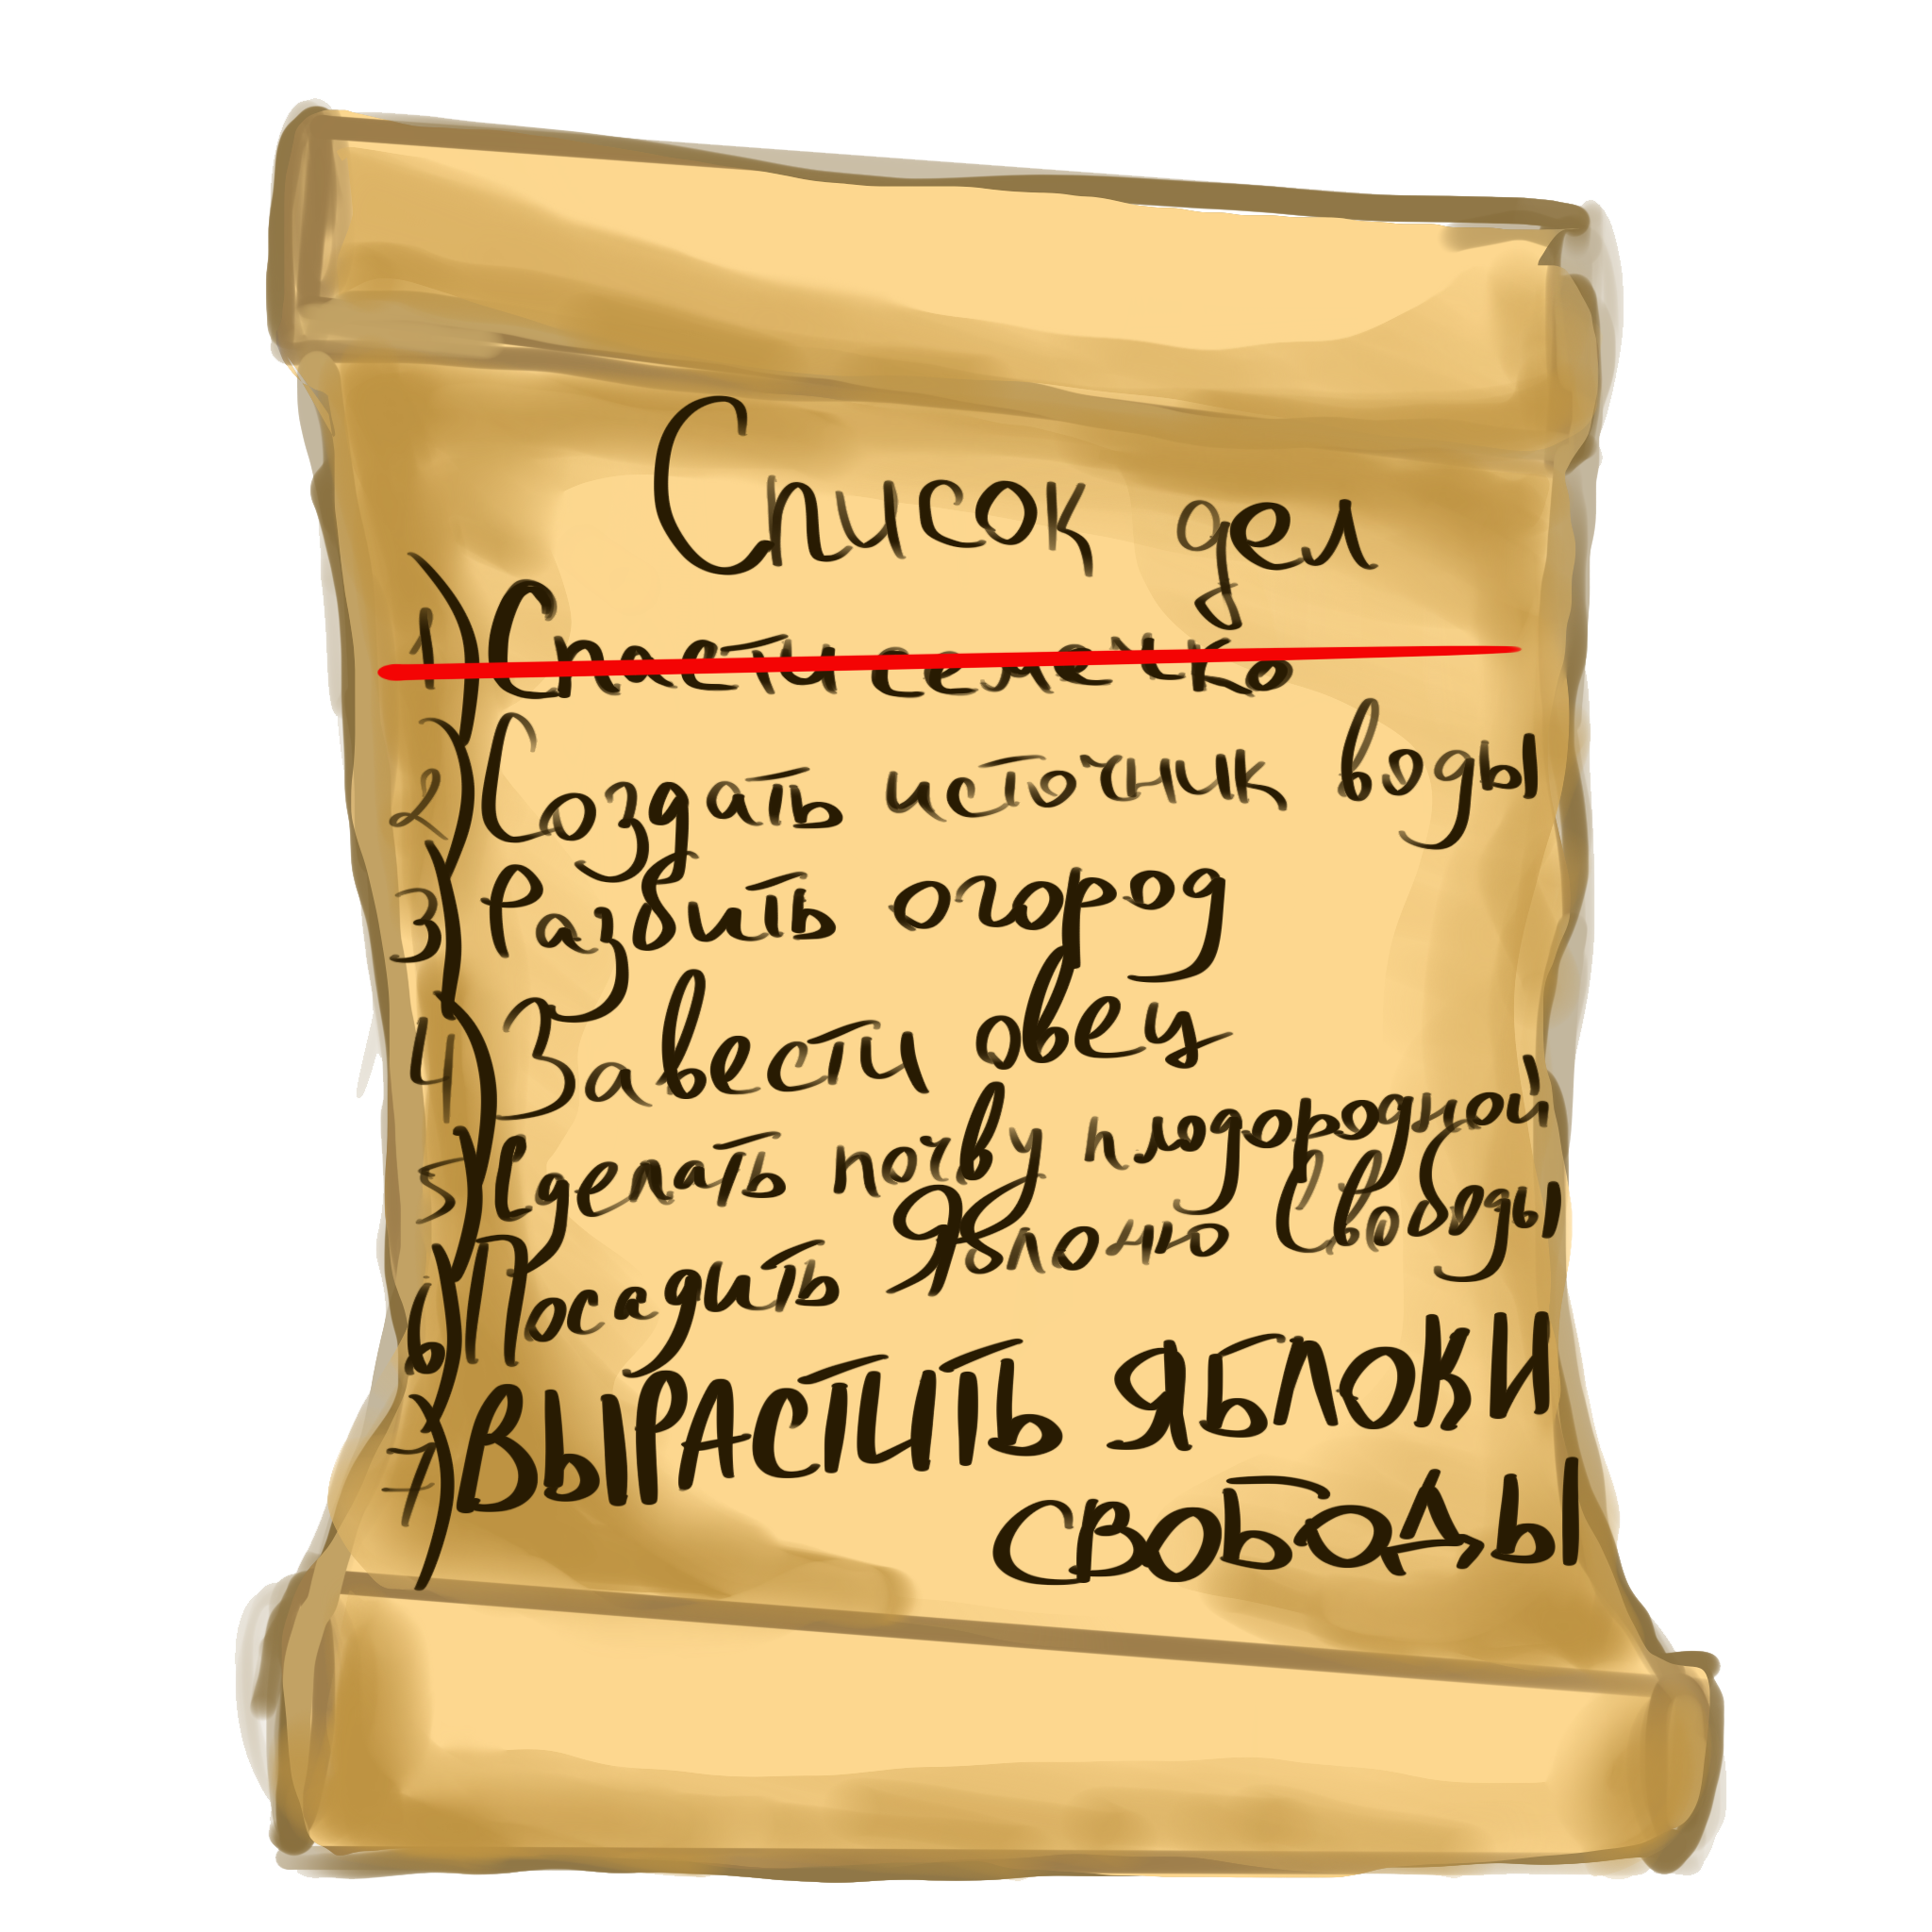 Список дел
1) Спасти семечко
2) Создать источник воды
3) Разбить огород
4) Завести овец
5) Сделать почву плодородной
6) Посадить Яблоню Свободы
7) ВЫРАСТИТЬ ЯБЛОКИ
СВОБОДЫ